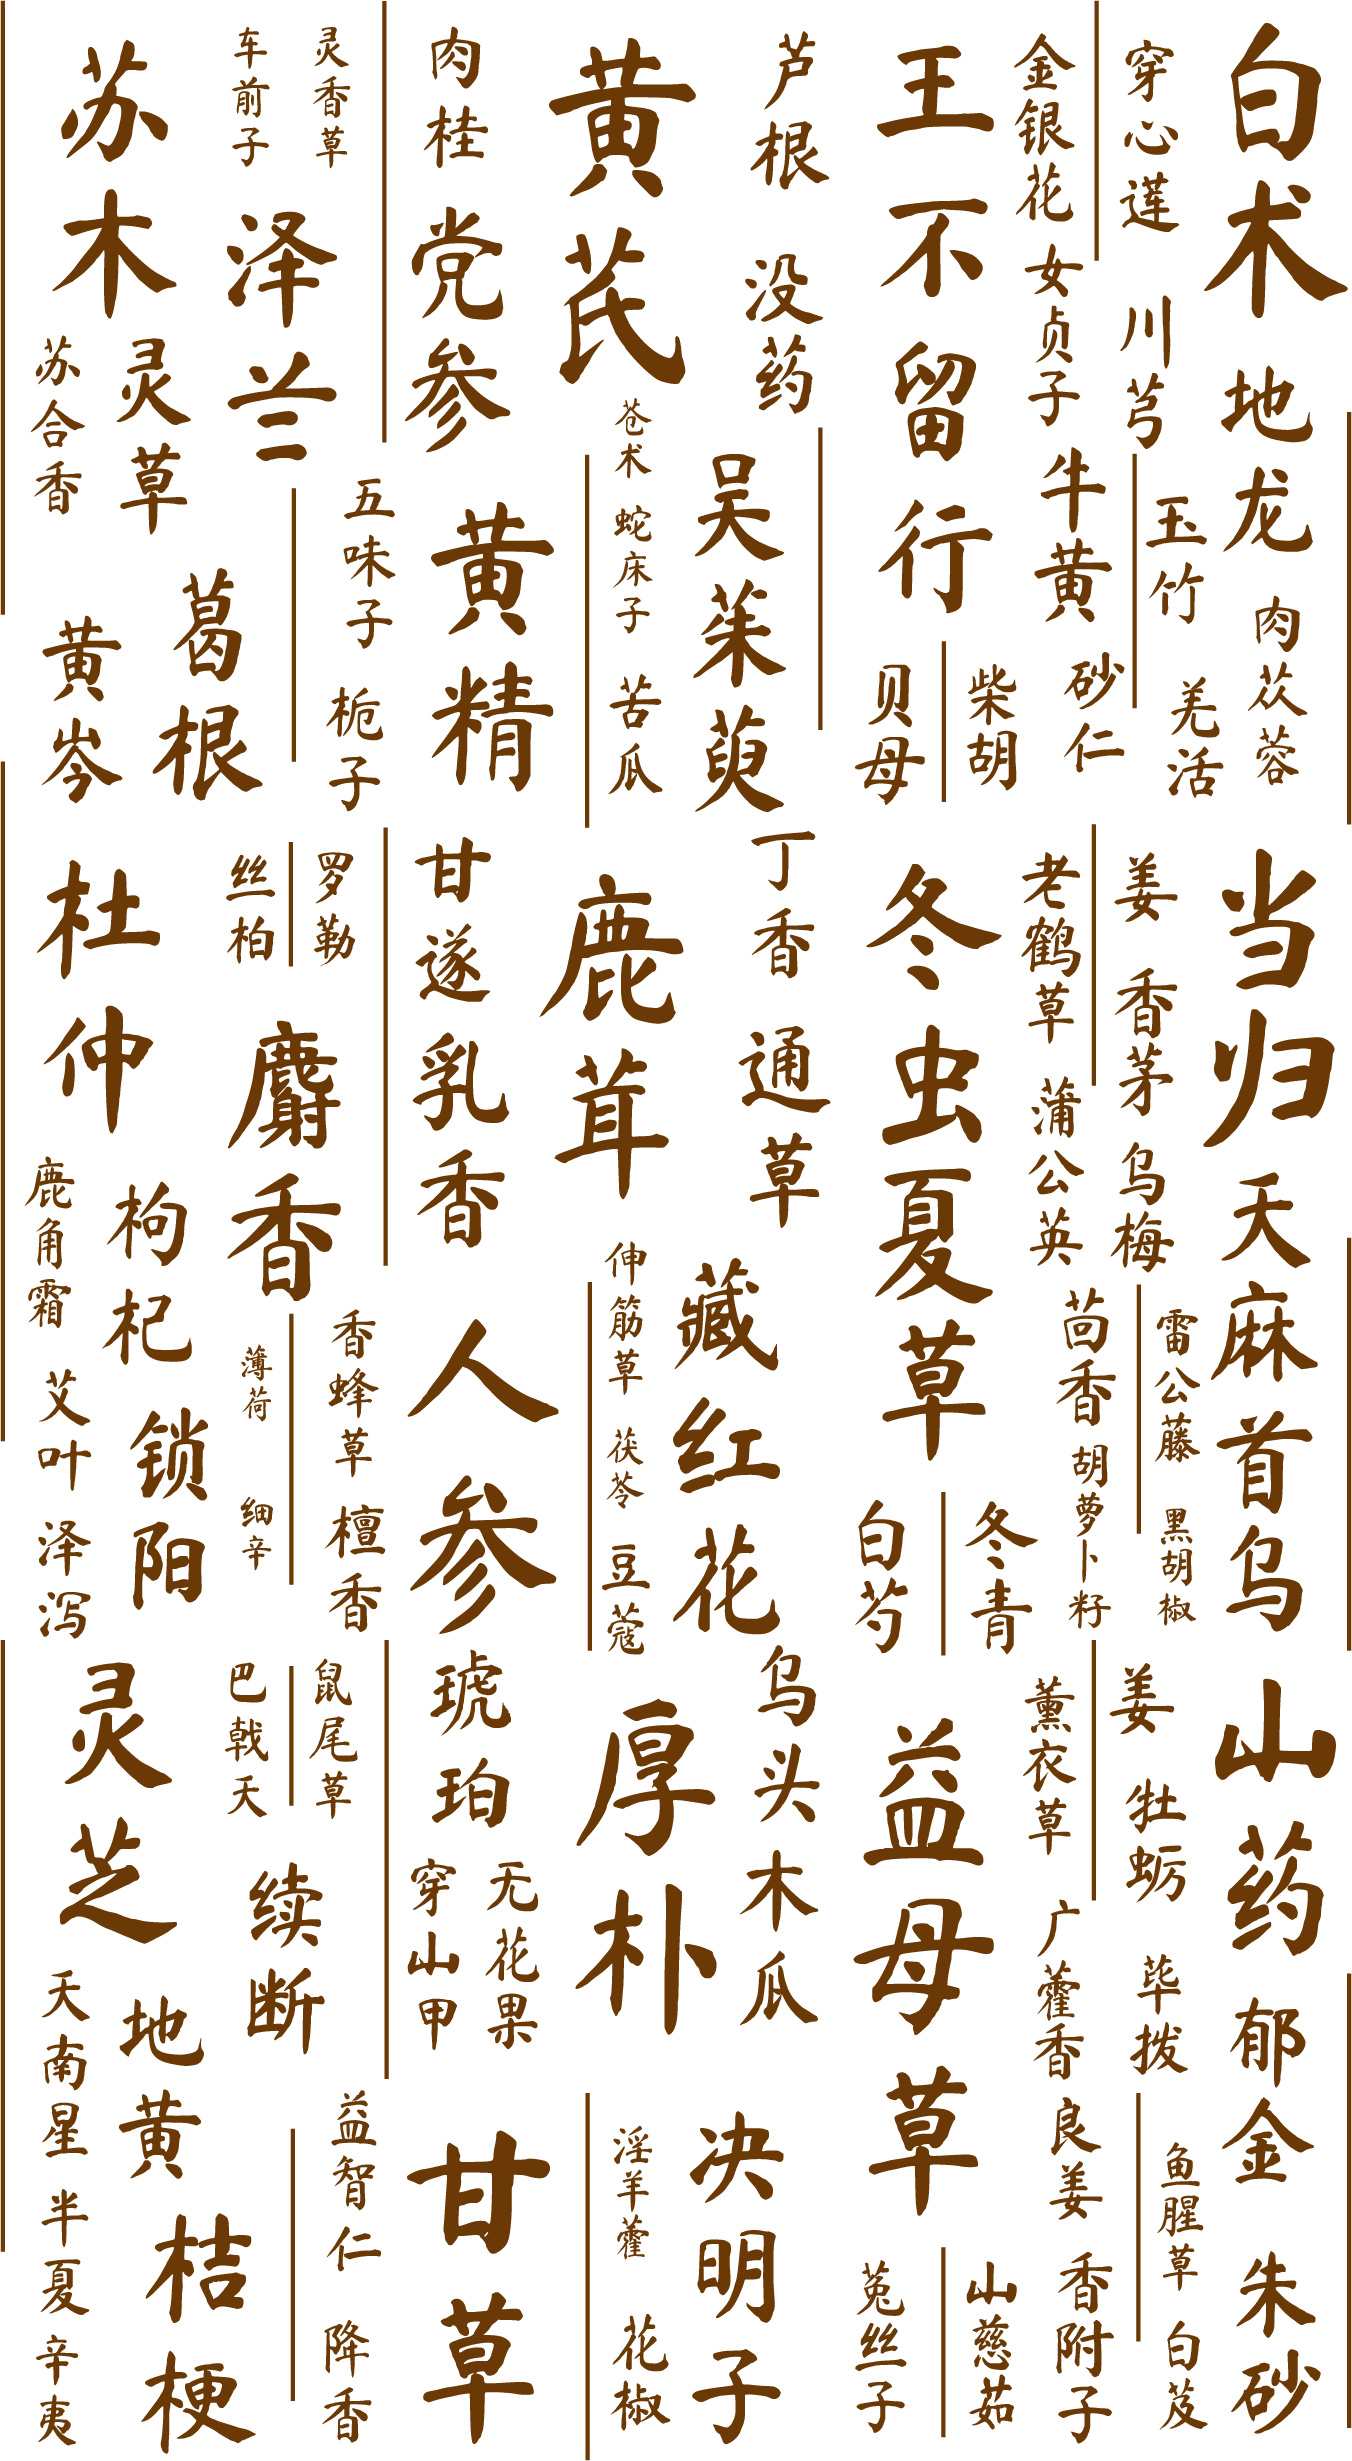 白术
地龙
肉苁蓉
穿心莲
川芎
玉竹
羌活
金银花
女贞子
牛黄
砂仁
王不留行
柴胡
贝母
芦根
没药
吴茱萸
黄芪
苍术
蛇床子
苦瓜
肉桂
党参
黄精
灵香草
车前子
泽兰
五味子
栀子
苏木
灵草
苏合香
葛根
黄岑
当归
天麻
首乌
姜
香茅
乌梅
雷公藤
黑胡椒
老鹤草
蒲公英
茴香
胡萝卜籽
冬虫夏草
冬青
白芍
丁香
通草
藏红花
鹿茸
伸筋草
茯苓
豆蔻
甘遂
乳香
人参
罗勒
丝柏
麝香
香蜂草
檀香
薄荷
细辛
杜仲
枸杞
锁阳
鹿角霜
艾叶
泽泻
山药
郁金
朱砂
姜
牡蛎
毕拨
鱼腥草
白芨
薰衣草
广藿香
良姜
香附子
益母草
山慈茹
菟丝子
乌头
木瓜
决明子
厚朴
淫羊藿
花椒
琥珀
无花果
穿山甲
甘草
鼠尾草
巴戟天
续断
益智仁
降香
灵芝
地黄
桔梗
天南星
半夏
辛夷